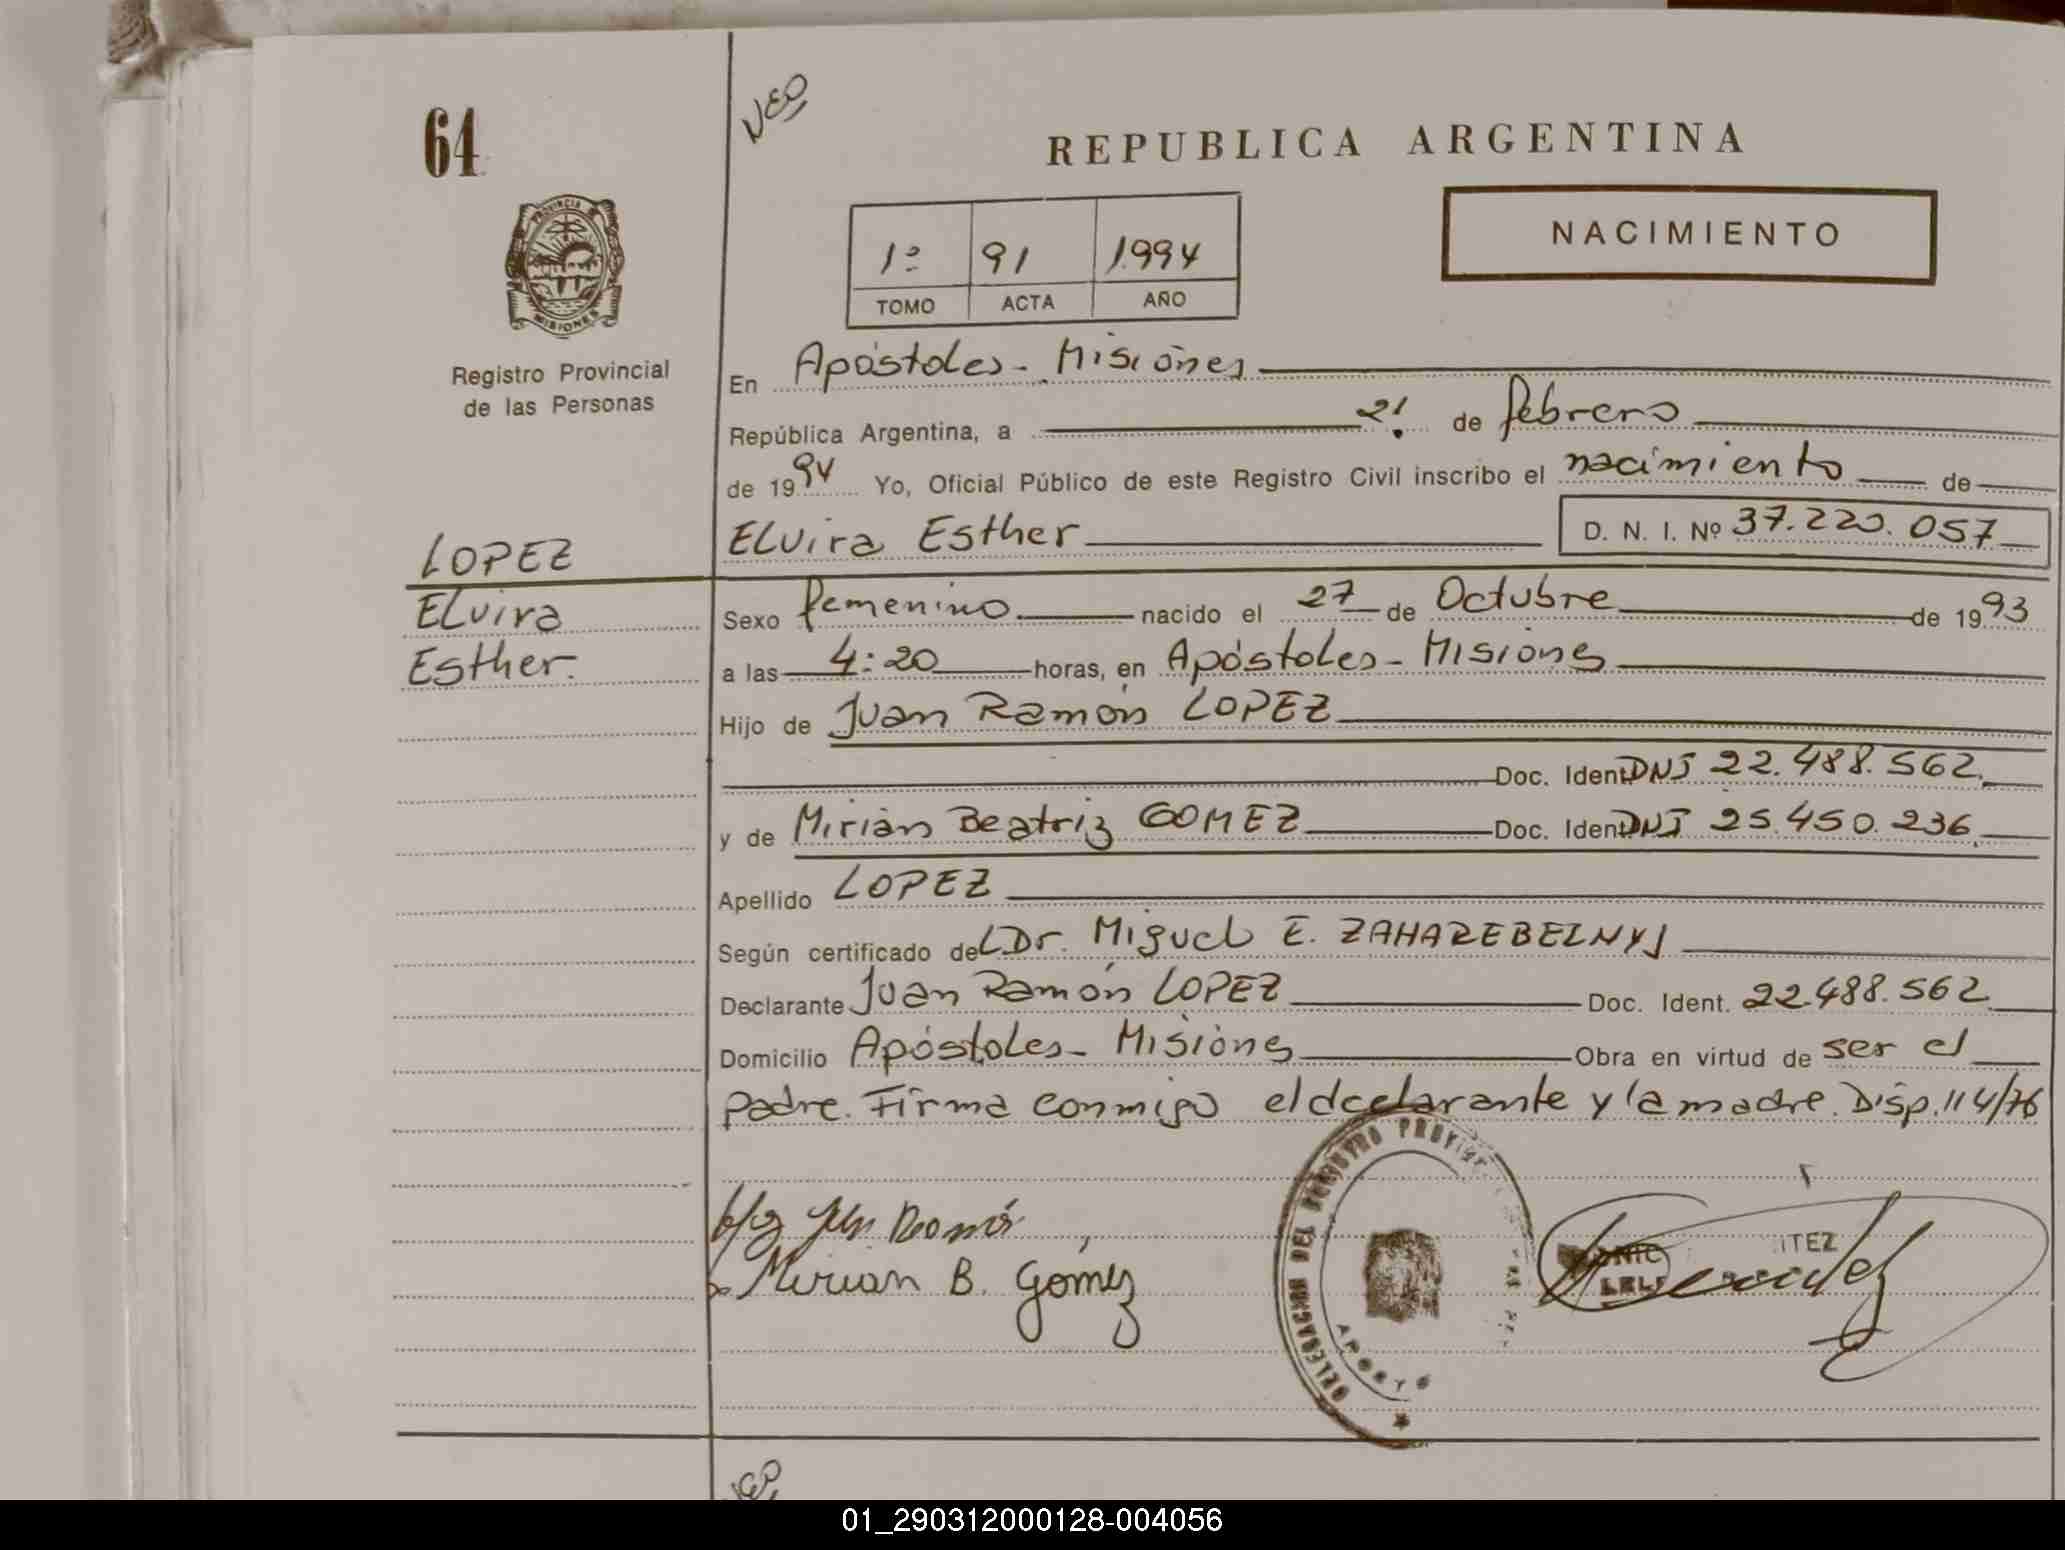 64
NEO
REPUBLICA ARGENTINA
PROVINCIA DE
MISIONES
Registro Provincial
de las Personas
1º 91 1994
TOMO ACTA AÑO
NACIMIENTO
En Apóstoles - Misiones
República Argentina, a 21 de febrero
de 1994 Yo, Oficial Público de este Registro Civil inscribo el nacimiento de
Elvira Esther D. N. I. Nº 37.220.057
LOPEZ
Elvira
Esther.
Sexo femenino nacido el 27 de Octubre de 1993
a las 4:20 horas, en Apóstoles - Misiones
Hijo de Juan Ramón LOPEZ
Doc. Ident. DNI 22.488.562
y de Mirian Beatriz GOMEZ Doc. Ident. DNI 25.450.236
Apellido LOPEZ
Según certificado del Dr. Miguel E. ZAHAREBELNYJ
Declarante Juan Ramón LOPEZ Doc. Ident. 22.488.562
Domicilio Apóstoles - Misiones Obra en virtud de ser el
padre. Firma conmigo el declarante y la madre. Disp. 114/76
DELEGACION DEL REGISTRO
Mirian B. Gómez
ITEZ
01_290312000128-004056